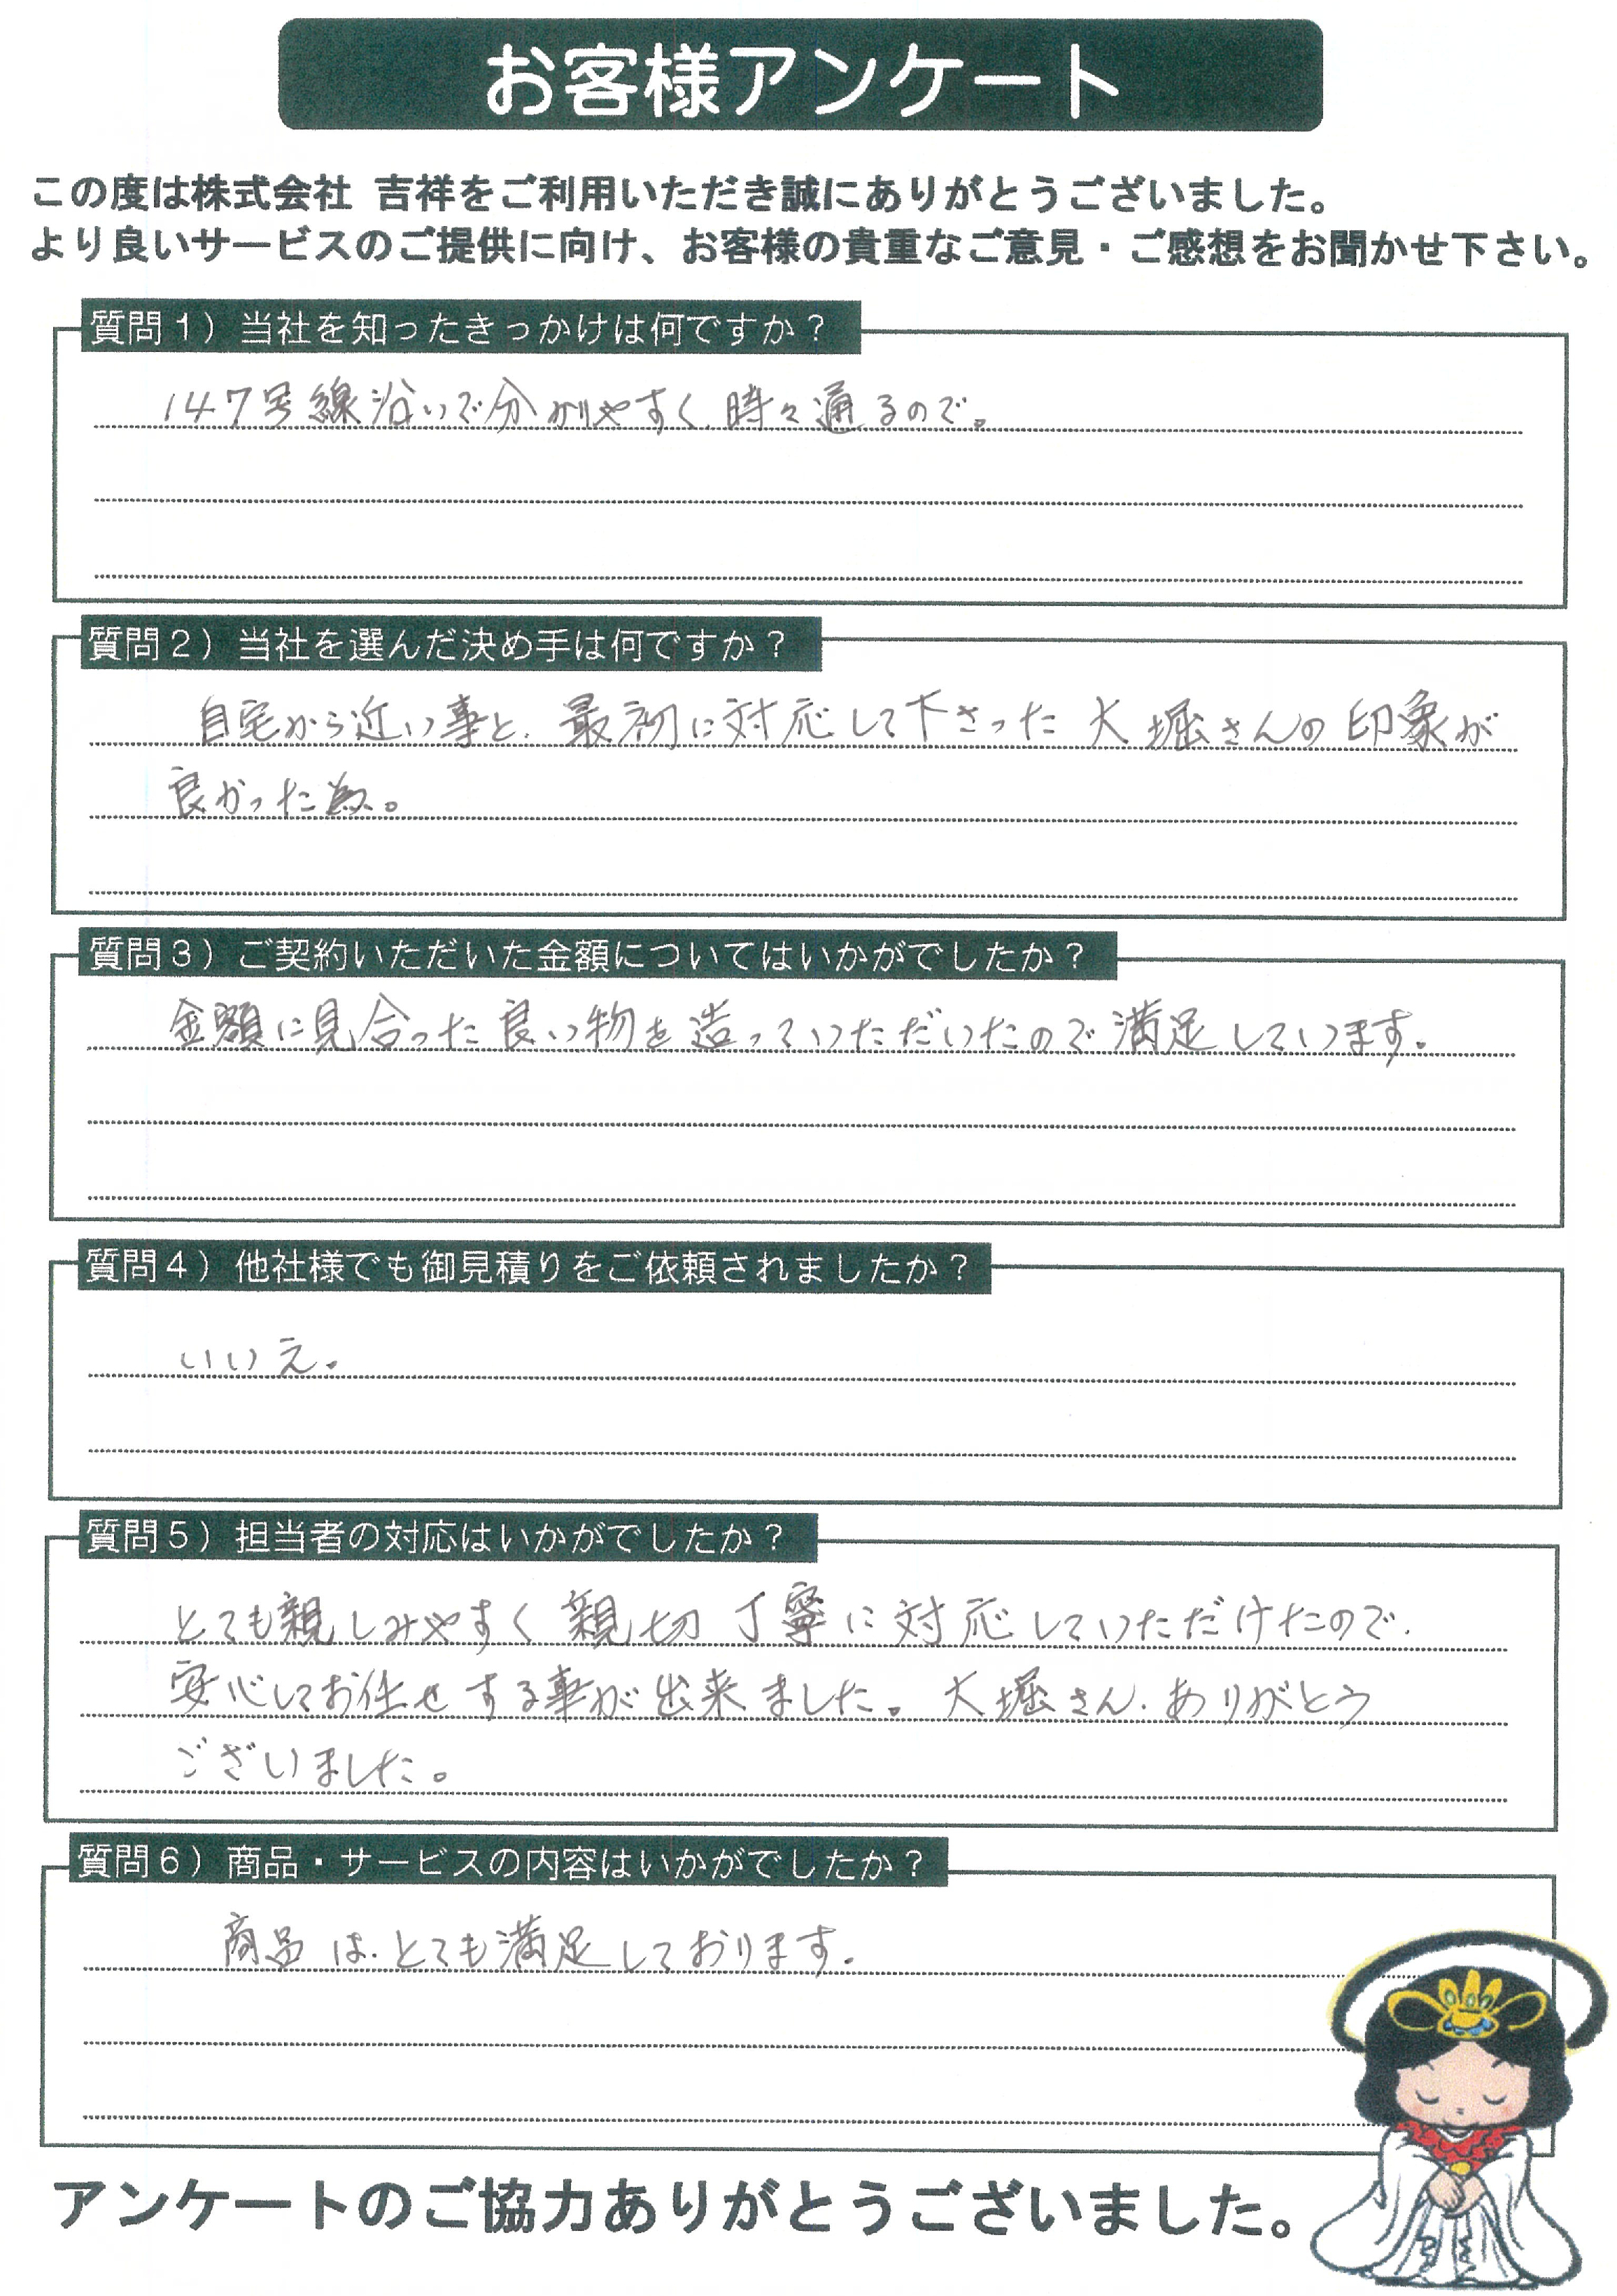 お客様アンケート
この度は株式会社 吉祥をご利用いただき誠にありがとうございました。
より良いサービスのご提供に向け、お客様の貴重なご意見・ご感想をお聞かせ下さい。
質問1）当社を知ったきっかけは何ですか？
147号線沿いで分かりやすく、時々通るので。
質問2）当社を選んだ決め手は何ですか？
自宅から近い事と、最初に対応して下さった大堀さんの印象が
良かった為。
質問3）ご契約いただいた金額についてはいかがでしたか？
金額に見合った良い物を造っていただいたので満足しています。
質問4）他社様でも御見積りをご依頼されましたか？
いいえ。
質問5）担当者の対応はいかがでしたか？
とても親しみやすく親切丁寧に対応していただけたので、
安心してお任せする事が出来ました。大堀さん、ありがとう
ございました。
質問6）商品・サービスの内容はいかがでしたか？
商品は、とても満足しております。
アンケートのご協力ありがとうございました。